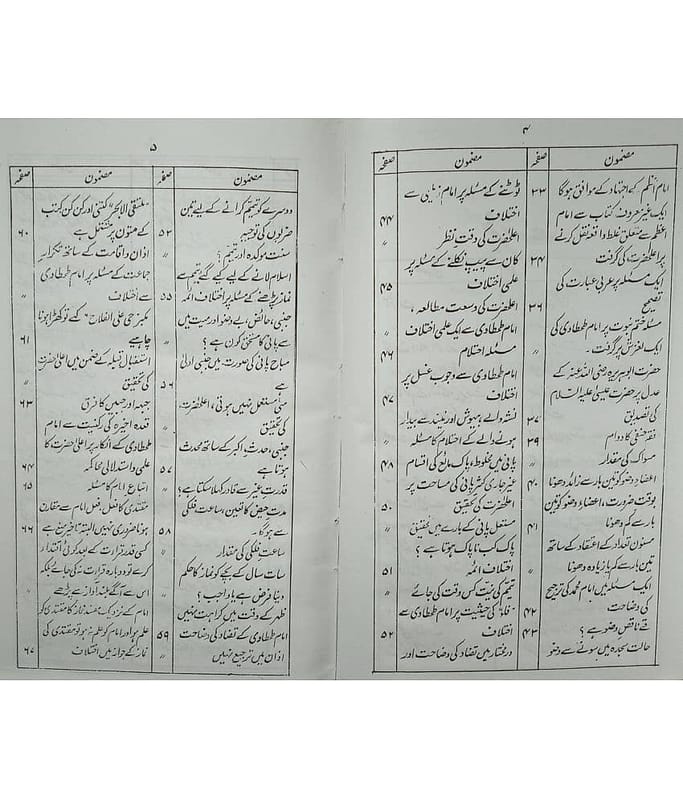 ۴
مضمون
صفحہ
مضمون
صفحہ
امام اعظم کے اجتہاد کے موافق ہوگا
۲۳
ایک غیر معروف کتاب سے امام
اعظم سے متعلق غلط واقعہ نقل کرنے
پر اعلیٰحضرت کی گرفت
۲۴
ایک مسئلہ پر عربی عبارت کی
تصحیح
۳۶
مسئلہ ختم نبوت پر امام طحطاوی کی
ایک لغزش پر گرفت۔
"
حضرت ابوہریرہ رضی اللہ عنہ کے
عدل پر حضرت عیسیٰ علیہ السلام
کی تصدیق
۳۷
فقہ حنفی کا دوام
۳۹
مسواک کی مقدار
"
اعضاءِ وضو کو تین بار سے زائد دھونا
۴۰
بوقت ضرورت، اعضاءِ وضو کو تین
بار سے کم دھونا
۴۱
مسنون تعداد کے اعتقاد کے ساتھ
تین بار سے کم یا زیادہ دھونا
"
ایک مسئلہ میں امام محمد کی ترجیح
کی وضاحت
۴۲
قے ناقض وضو ہے؟
۴۳
حالت سجدہ میں سونے سے وضو
ٹوٹنے کے مسئلہ پر امام زیلعی سے
اختلاف
۴۴
اعلیٰحضرت کی دقت نظر
"
کان سے پیپ نکلنے کے مسئلہ پر
علمی اختلاف
۴۵
اعلیٰحضرت کی وسعت مطالعہ،
امام طحطاوی سے ایک علمی اختلاف
"
مسئلہ احتلام
۴۶
امام طحطاوی سے وجوب غسل پر
اختلاف
۴۷
نشہ والے بیہوش اور نیند سے بیدار
ہونے والے کے احتلام کا مسئلہ
"
پانی میں مخلوط، پاک مائع کی اقسام
۴۸
غیر جاری کثیر پانی کی مساحت پر
اعلیٰحضرت کی تحقیق
۵۰
مستعمل پانی کے بارے میں تحقیق
"
پاک کب ناپاک ہوتا ہے؟
اختلاف ائمہ
۵۱
تیمم کی نیت کس وقت کی جائے
"
خاک کی حیثیت پر امام طحطاوی سے
اختلاف
۵۲
درمختار میں تضاد کی وضاحت اور
۵
مضمون
صفحہ
مضمون
صفحہ
دوسرے کو تیمم کرانے کے لیے تین
ضربوں کی توجیہ
۵۲
سنت مؤکدہ اور تیمم؟
"
اسلام لانے کے لیے کیے گئے تیمم سے
نماز پڑھنے کے مسئلہ پر اختلاف ائمہ
۵۵
جنبی، حائض، بے وضو اور میت میں
سے پانی کا مستحق کون ہے؟
"
مباح پانی کی صورت میں جنبی اولیٰ
ہے
۵۶
مٹی مستعمل نہیں ہوتی، اعلیٰحضرت
کی تحقیق
"
جنبی، حدث اکبر کے ساتھ محدث
ہوتا ہے
۵۷
قدرتِ غیر سے قادر کہلا سکتا ہے؟
"
مدت حیض کا تعین، ساعت فلکی
سے ہوگا
۵۸
ساعت فلکی کی مقدار
"
سات سال کے بچے کو نماز کا حکم
دینا فرض ہے یا واجب؟
"
ظہر کے وقت میں کراہت نہیں
"
امام طحطاوی کے تضاد کی وضاحت
۵۹
اذان میں ترجیع نہیں
"
ملتقی الابحر" کتنی اور کن کن کتب
کے متون پر مشتمل ہے
۶۰
اذان و اقامت کے ساتھ تکرار
جماعت کے مسئلہ پر امام طحطاوی
سے اختلاف
"
مکبر "حی علی الفلاح" کہے تو کھڑا ہونا
چاہیے
۶۱
استقبال قبلہ کے ضمن میں اعلیٰحضرت
کی تحقیق
"
جبہہ اور جبین کا فرق
۶۳
قعدہ اخیرہ کی رکنیت سے امام
طحطاوی کے انکار پر اعلیٰحضرت کا
علمی و استدلالی محاکمہ
۶۴
اتباع امام کا مسئلہ
۶۵
مقتدی کا فعل، فعل امام سے مقارن
ہونا ضروری نہیں البتہ تاخیر منع ہے
۶۶
کسی قدر قرات کے بعد کوئی اقتداء
کرے تو دوبارہ قرات نہ کی جائے بلکہ
اس سے آگے بلند آواز سے پڑھے
"
امام کے نزدیک مفسد نماز کا مقتدی کو
علم ہو اور امام کو علم نہ ہو تو مقتدی کی
نماز کے جواز میں اختلاف
۶۷